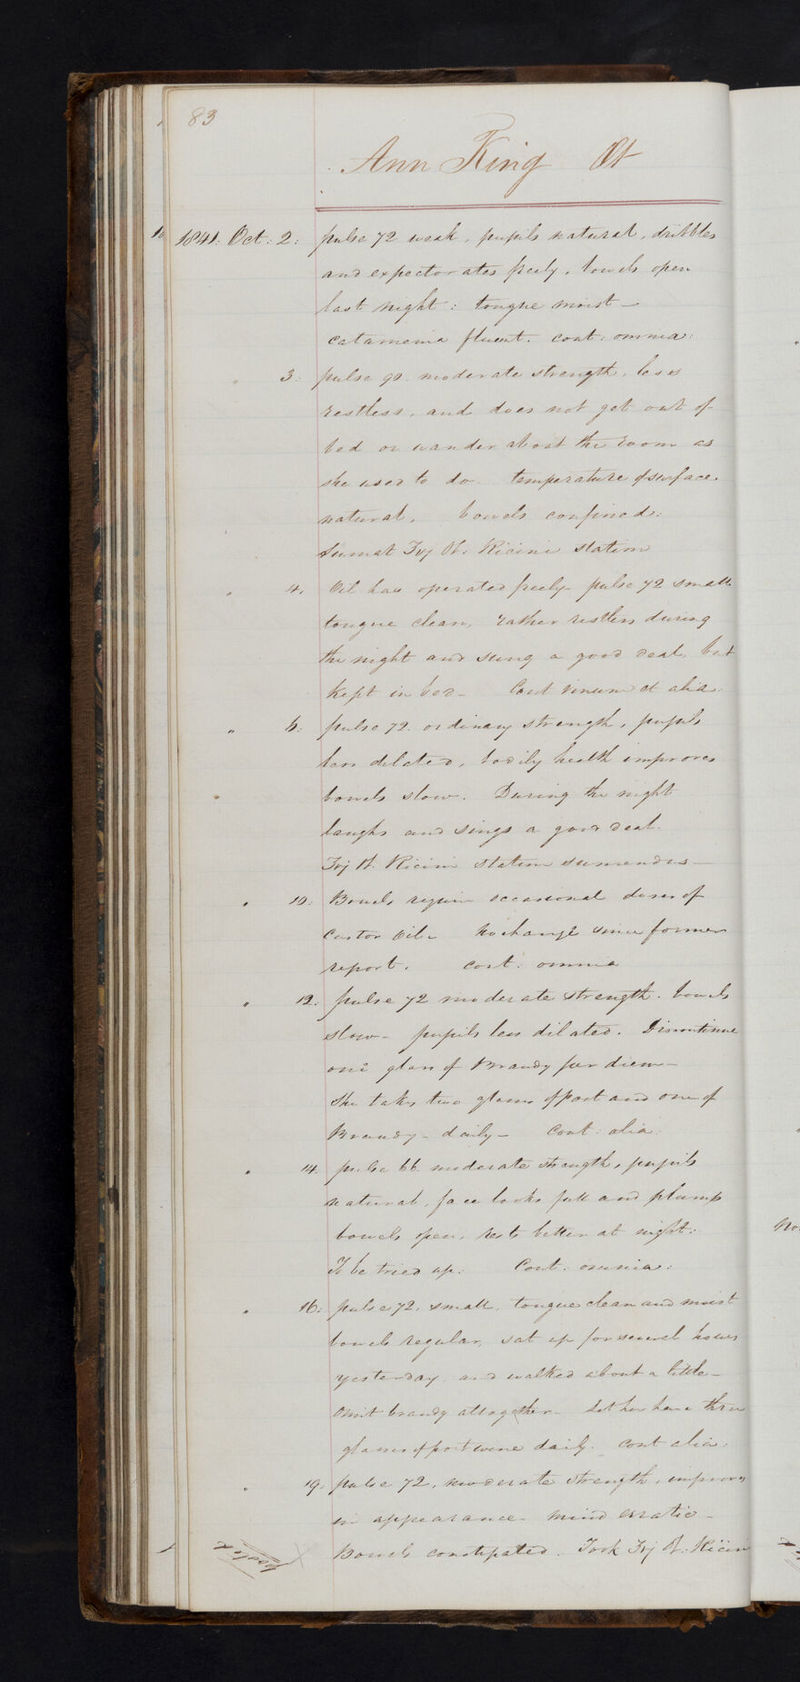 83
Ann King Æt
1841. Oct: 2: pulse 72 weak, pupils natural, dribbles
and expectorates freely, bowels open
last night: tongue moist –
catamenia fluent. cont: omnia:
3: pulse 90 moderate strength, less
restless, and does not get out of
bed or wander about the room as
she used to do. temperature of surface
natural. bowels confined:
Sumat Ol. Ricini statim
4. Oil has operated freely – pulse 72 small
tongue clean, rather restless during
the night and sung a good deal, but
kept in bed – Cont vinum et alia.
" 6: pulse 72. ordinary strength, pupils
less dilated, bodily health improves
bowels slow. During the night
laughs and sings a good deal.
Ol. Ricini statim sumendus –
" 10: Bowels require occasional doses of
Castor Oil – No change since former
report. cont: omnia
" 12: pulse 72 moderate strength. bowels
slow – pupils less dilated. Discontinue
one glass of Brandy per diem –
She takes two glasses of port and one of
Brandy – daily – Cont: alia.
" 14. pulse 66 moderate strength, pupils
natural, face looks full and plump
bowels open, rests better at night:
To be tried up. Cont: omnia:
" 16: pulse 72, small, tongue clean and moist
bowels regular, sat up for several hours
yesterday, and walked about a little –
Omit brandy altogether – Let her have three
glasses of port wine daily. cont alia.
" 19. pulse 72, moderate strength, improves
in appearance – mind erratic –
Bowels constipated. Took Ol. Ricini